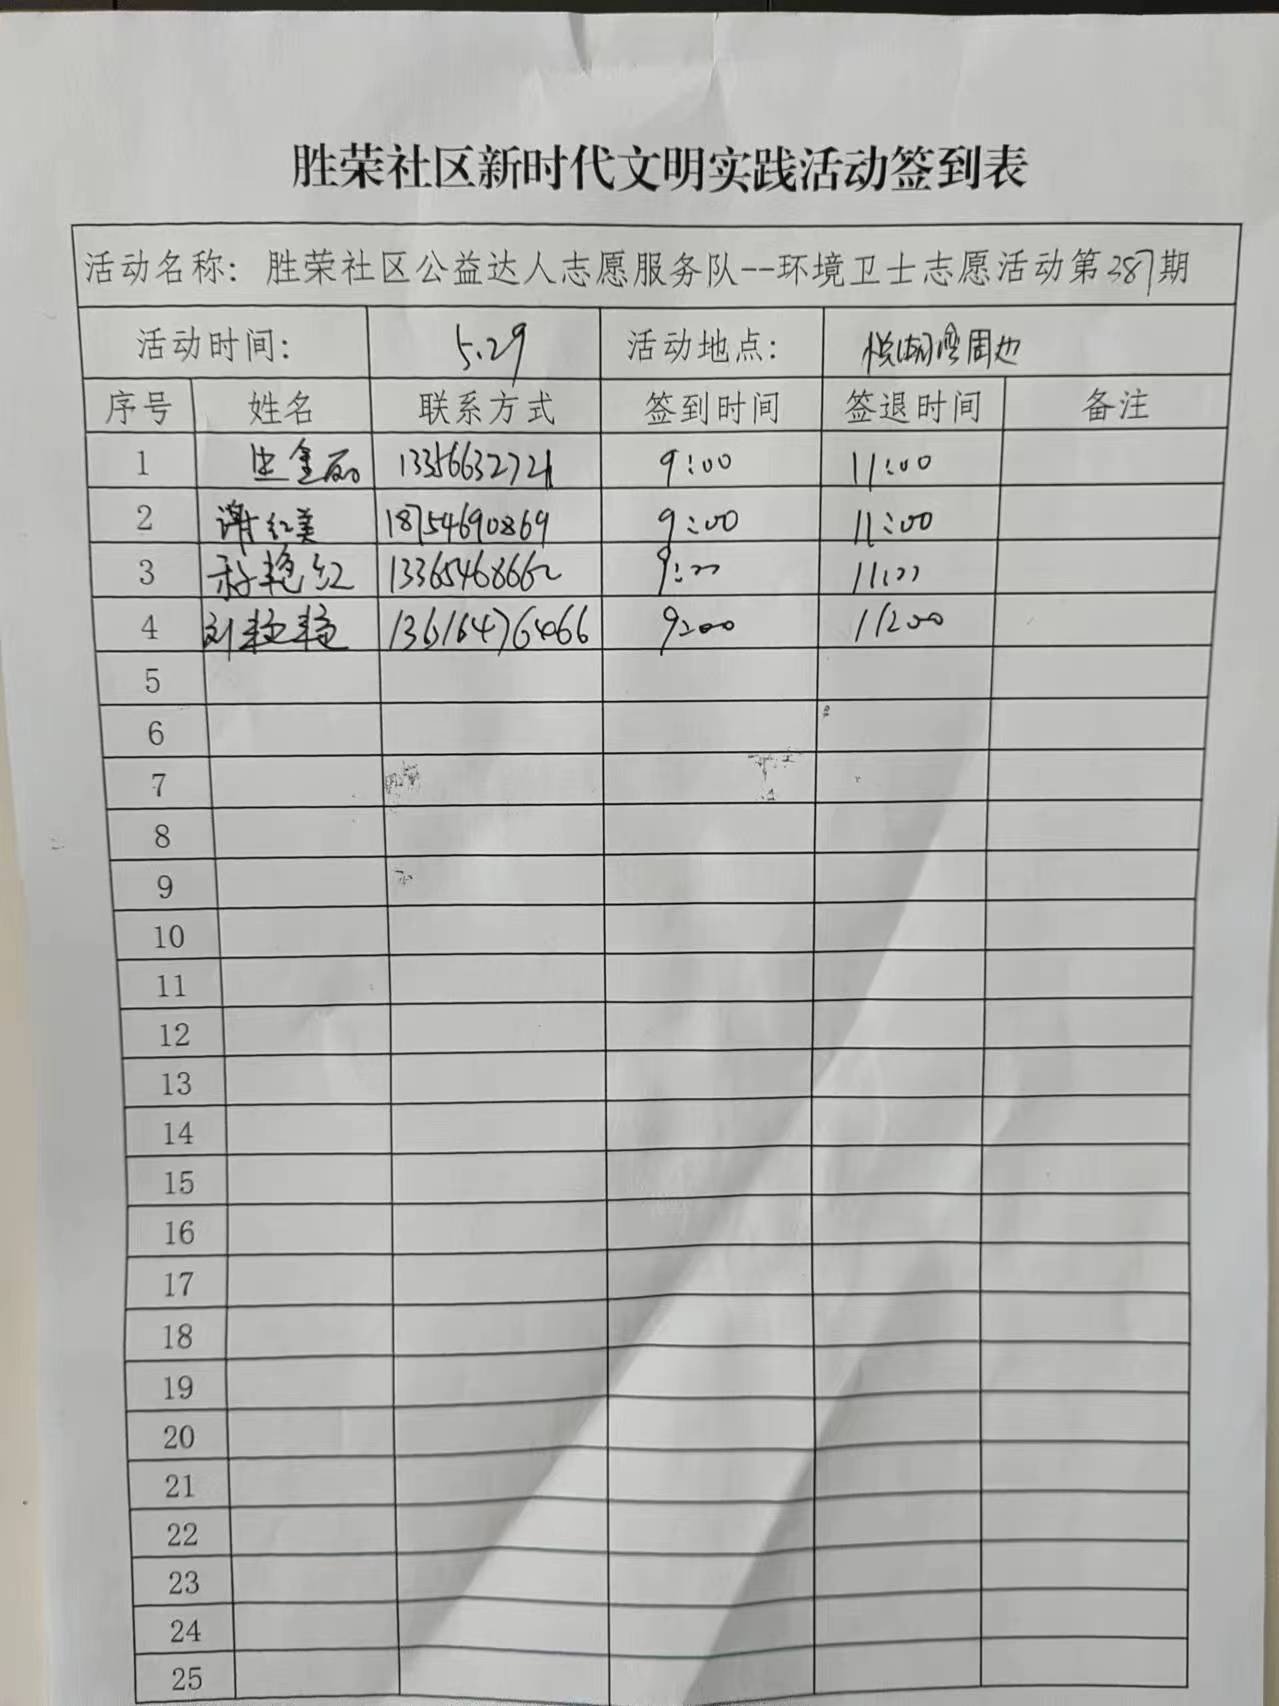 胜荣社区新时代文明实践活动签到表
活动名称：胜荣社区公益达人志愿服务队--环境卫士志愿活动第387期
活动时间： 5.29 活动地点： 悦湖湾周边
序号 姓名 联系方式 签到时间 签退时间 备注
1 金丽 13356632721 9:00 11:00
2 谢红美 18754690869 9:00 11:00
3 艳红 13365468662 9:00 11:00
4 刘艳艳 9:00 11:00
5
6
7
8
9
10
11
12
13
14
15
16
17
18
19
20
21
22
23
24
25